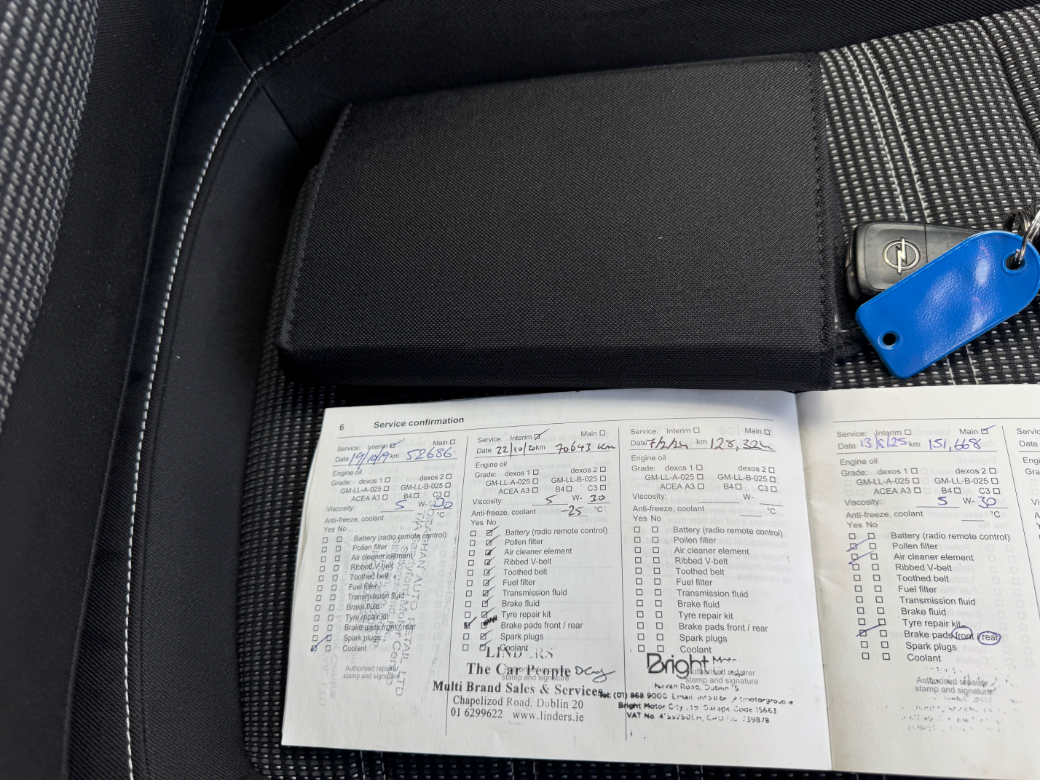 6 Service confirmation
Service: Interim Main
Date 19/10/19 km 52686
Engine oil
Grade: dexos 1 dexos 2
GM-LL-A-025 GM-LL-B-025
ACEA A3 B4 C3
Viscosity: 5 W- 30
Anti-freeze, coolant °C
Yes No
Battery (radio remote control)
Pollen filter
Air cleaner element
Ribbed V-belt
Toothed belt
Fuel filter
Transmission fluid
Brake fluid
Tyre repair kit
Brake pads front / rear
Spark plugs
Coolant
Authorised repairer
stamp and signature
Service: Interim Main
Date 22/10/ km 70643 km
Engine oil
Grade: dexos 1 dexos 2
GM-LL-A-025 GM-LL-B-025
ACEA A3 B4 C3
Viscosity: 5 W- 30
Anti-freeze, coolant -25 °C
Yes No
Battery (radio remote control)
Pollen filter
Air cleaner element
Ribbed V-belt
Toothed belt
Fuel filter
Transmission fluid
Brake fluid
Tyre repair kit
Brake pads front / rear
Spark plugs
Coolant
LINDERS
The Car People
Multi Brand Sales & Services
Chapelizod Road, Dublin 20
01 6299622 www.linders.ie
Service: Interim Main
Date 7/2/24 km 128,324
Engine oil
Grade: dexos 1 dexos 2
GM-LL-A-025 GM-LL-B-025
ACEA A3 B4 C3
Viscosity: W-
Anti-freeze, coolant °C
Yes No
Battery (radio remote control)
Pollen filter
Air cleaner element
Ribbed V-belt
Toothed belt
Fuel filter
Transmission fluid
Brake fluid
Tyre repair kit
Brake pads front / rear
Spark plugs
Coolant
Bright
Authorised repairer
stamp and signature
Tel: (01) 868 9000
Bright Motor City Garage Code 15663
VAT No
Service: Interim Main
Date 13/8/25 km 151,668
Engine oil
Grade: dexos 1 dexos 2
GM-LL-A-025 GM-LL-B-025
ACEA A3 B4 C3
Viscosity: 5 W- 30
Anti-freeze, coolant °C
Yes No
Battery (radio remote control)
Pollen filter
Air cleaner element
Ribbed V-belt
Toothed belt
Fuel filter
Transmission fluid
Brake fluid
Tyre repair kit
Brake pads front / rear
Spark plugs
Coolant
Authorised repairer
stamp and signature